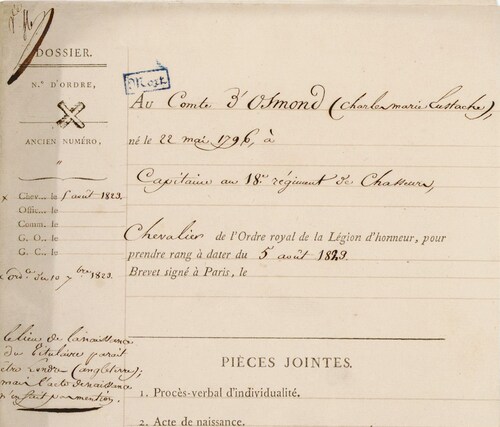 DOSSIER.
N.º D'ORDRE,
ANCIEN NUMÉRO,
"
x Chev... le 5 août 1823.
Offic... le
Comm. le
G. O... le
G. C... le
x ord.ce du 10 7bre 1823.
le lieu de la naissance
du titulaire parait
être Londres (angleterre);
mais l'acte de naissance
n'en fait pas mention.
Mort
Au Comte d'Osmond (charles marie Eustache),
né le 22 mai 1796, à
Capitaine au 18e régiment de Chasseurs,
Chevalier de l'Ordre royal de la Légion d'honneur, pour
prendre rang à dater du 5 août 1823.
Brevet signé à Paris, le
PIÈCES JOINTES.
1. Procès-verbal d'individualité.
2. Acte de naissance.